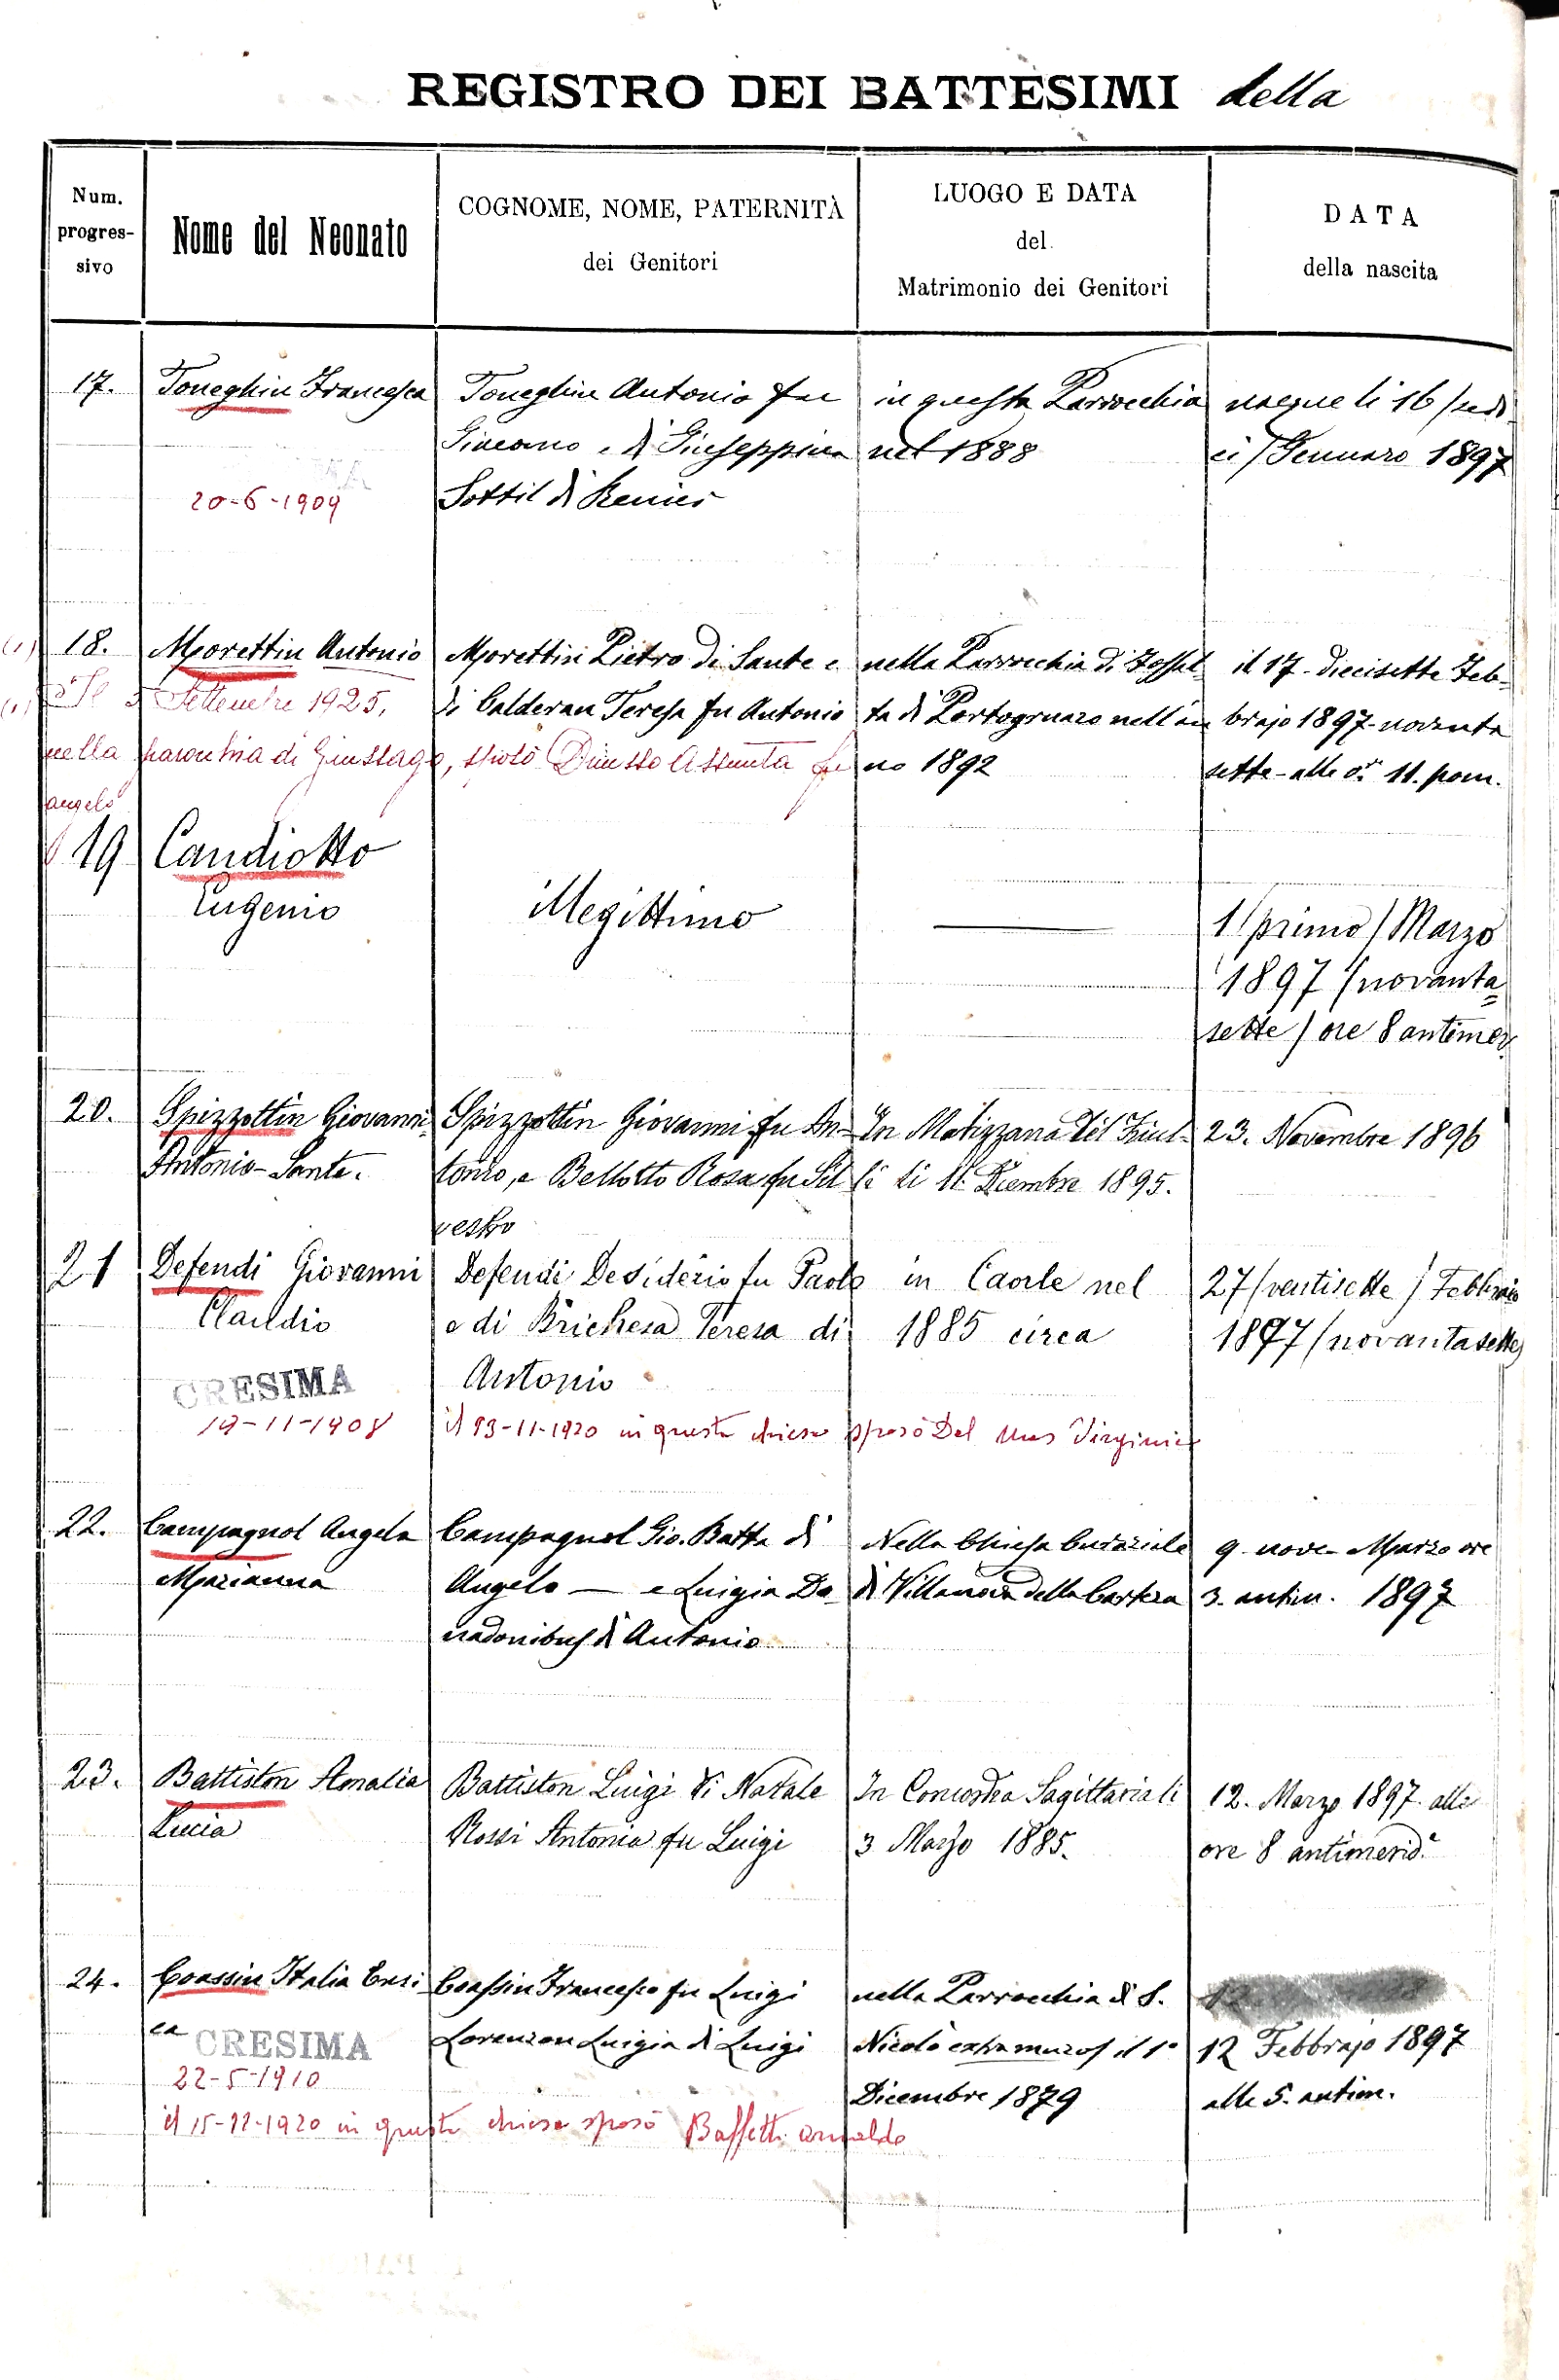 REGISTRO DEI BATTESIMI della
Num.
progres-
sivo
Nome del Neonato
COGNOME, NOME, PATERNITÀ
dei Genitori
LUOGO E DATA
del
Matrimonio dei Genitori
DATA
della nascita
17.
Toneghin Francesca
20-6-1909
Toneghin Antonio fu
Giacomo e di Giuseppina
Sottil di Renier
in questa Parrocchia
nel 1888
nacque li 16 /sedi
ci/ Gennaro 1897
(1) 18.
Morettin Antonio
Morettin Pietro di Sante e
di Calderan Teresa fu Antonio
nella Parrocchia di Fossal
ta di Portogruaro nell'an
no 1892
il 17. diecisette Feb-
brajo 1897 novanta
sette - alle or. 11. pom.
(1) Settembre 1925,
nella parochia di Giussago, sposò Assunta fu
angelo
19
Candiotto
Eugenio
illegittimo
1 /primo/ Marzo
1897 /novanta=
sette/ ore 8 antimer
20.
Spizzottin Giovanni
Antonio-Sante.
Spizzottin Giovanni fu An-
tonio, e Bellotto Rosa fu Sil
vestro
In Motizzana del Friul-
li li 11. Dicembre 1895.
23. Novembre 1896
21
Defendi Giovanni
Claudio
CRESIMA
19-11-1908
Defendi Desiderio fu Paolo
e di Brichesa Teresa di
Antonio
in Caorle nel
1885 circa
27 /ventisette/ Febbraio
1897 /novantasette/
-11-1920 in questa chiesa sposò Dal Virginia
22.
Campagnol Angela
Marianna
Campagnol Gio. Batta di
Angelo — e Luigia Do
nadonibus di Antonio
Nella Chiesa Curaziale
di Villanova della Cartera
9 nove Marzo ore
3. antim. 1897
23.
Battiston Amalia
Lucia
Battiston Luigi di Natale
Rossi Antonia fu Luigi
In Concordia Sagittaria li
3 Marzo 1885.
12. Marzo 1897. alle
ore 8 antimerid.e
24.
Coassin Italia Enri
ca
CRESIMA
22-5-1910
Coassin Francesco fu Luigi
Lorenzon Luigia di Luigi
nella Parrocchia di S.
Nicolò extra muros il 1°
Dicembre 1879
12 Febbrajo 1897
alle 5. antim.
il 15-12-1920 in questa chiesa sposò Baffetti Arnaldo